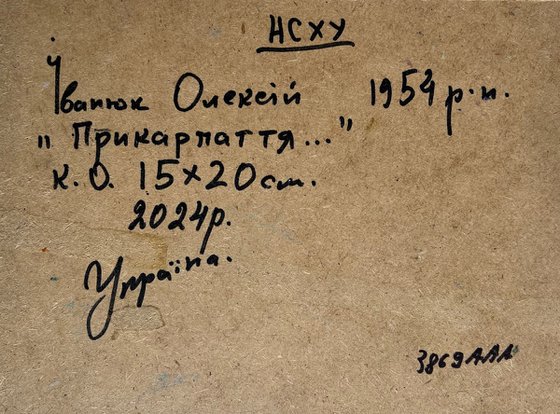 НСХУ
Іванюк Олексій 1954 р.н.
"Прикарпаття..."
к.о. 15×20см.
2024р.
Україна.